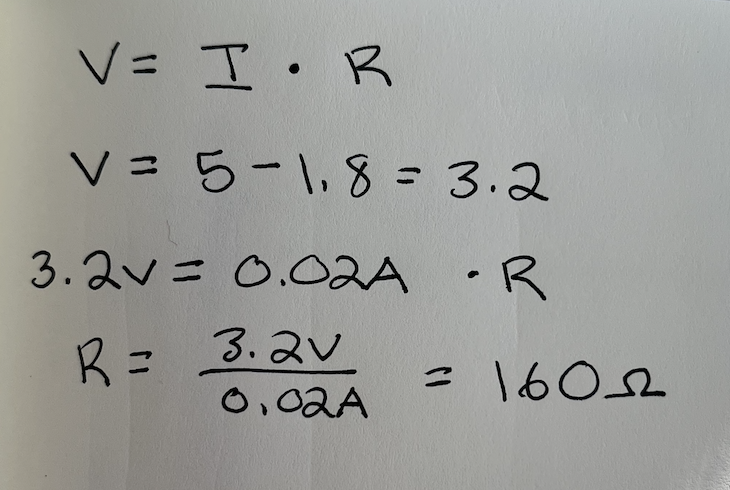 V = I · R
V = 5 - 1.8 = 3.2
3.2V = 0.02A · R
R = 3.2V / 0.02A = 160Ω